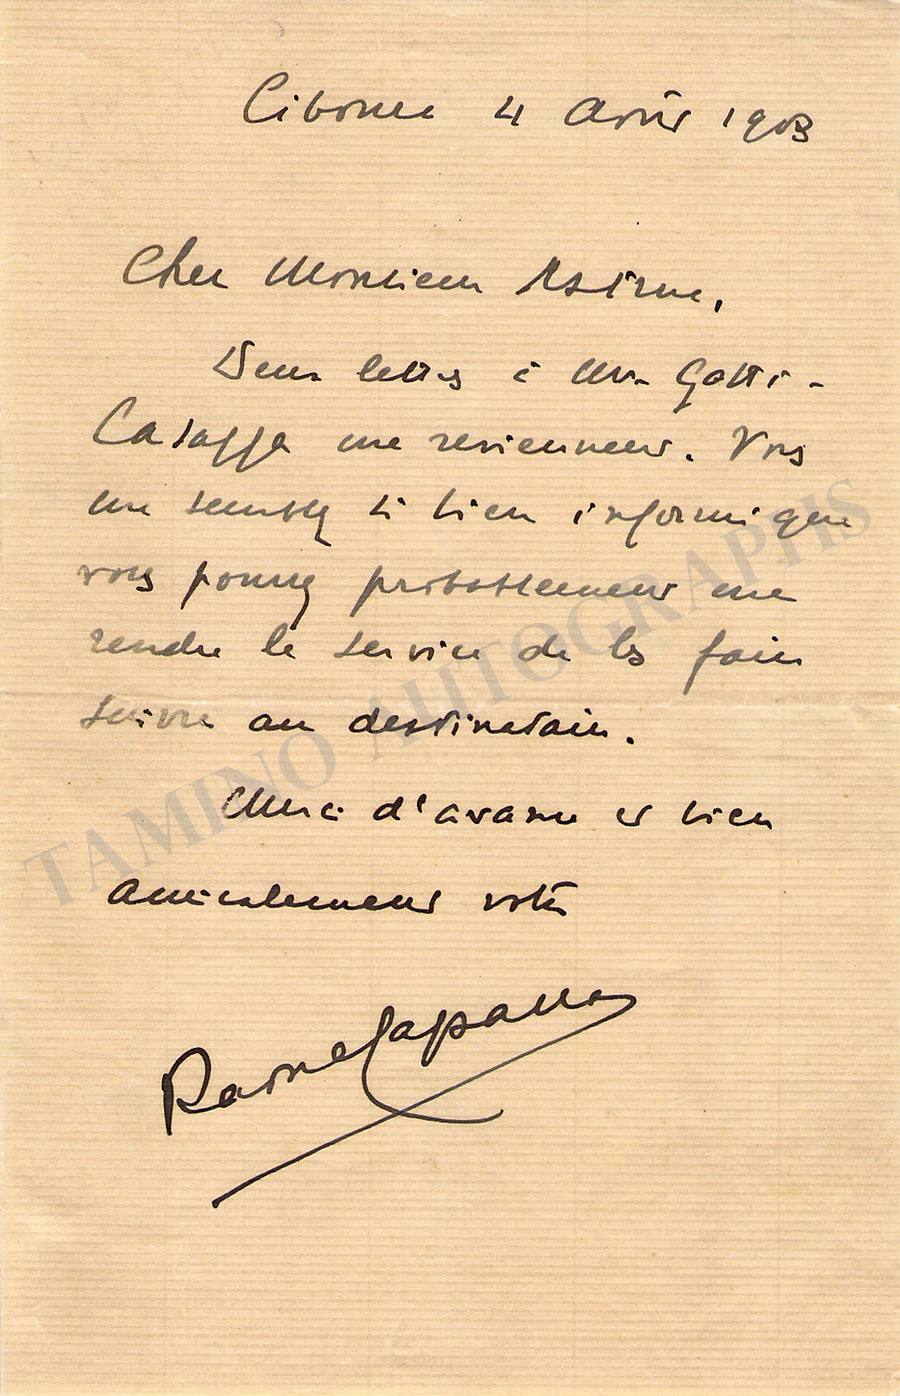 Ciboure 4 Août 1903
Cher Monsieur
Deux lettres à Mr. Gatti-
Casazza me reviennent. Vous
me semblez si bien informé que
vous pourrez probablement me
rendre le service de les faire
suivre au destinataire.
Merci d'avance et bien
amicalement votre
TAMINO AUTOGRAPHS